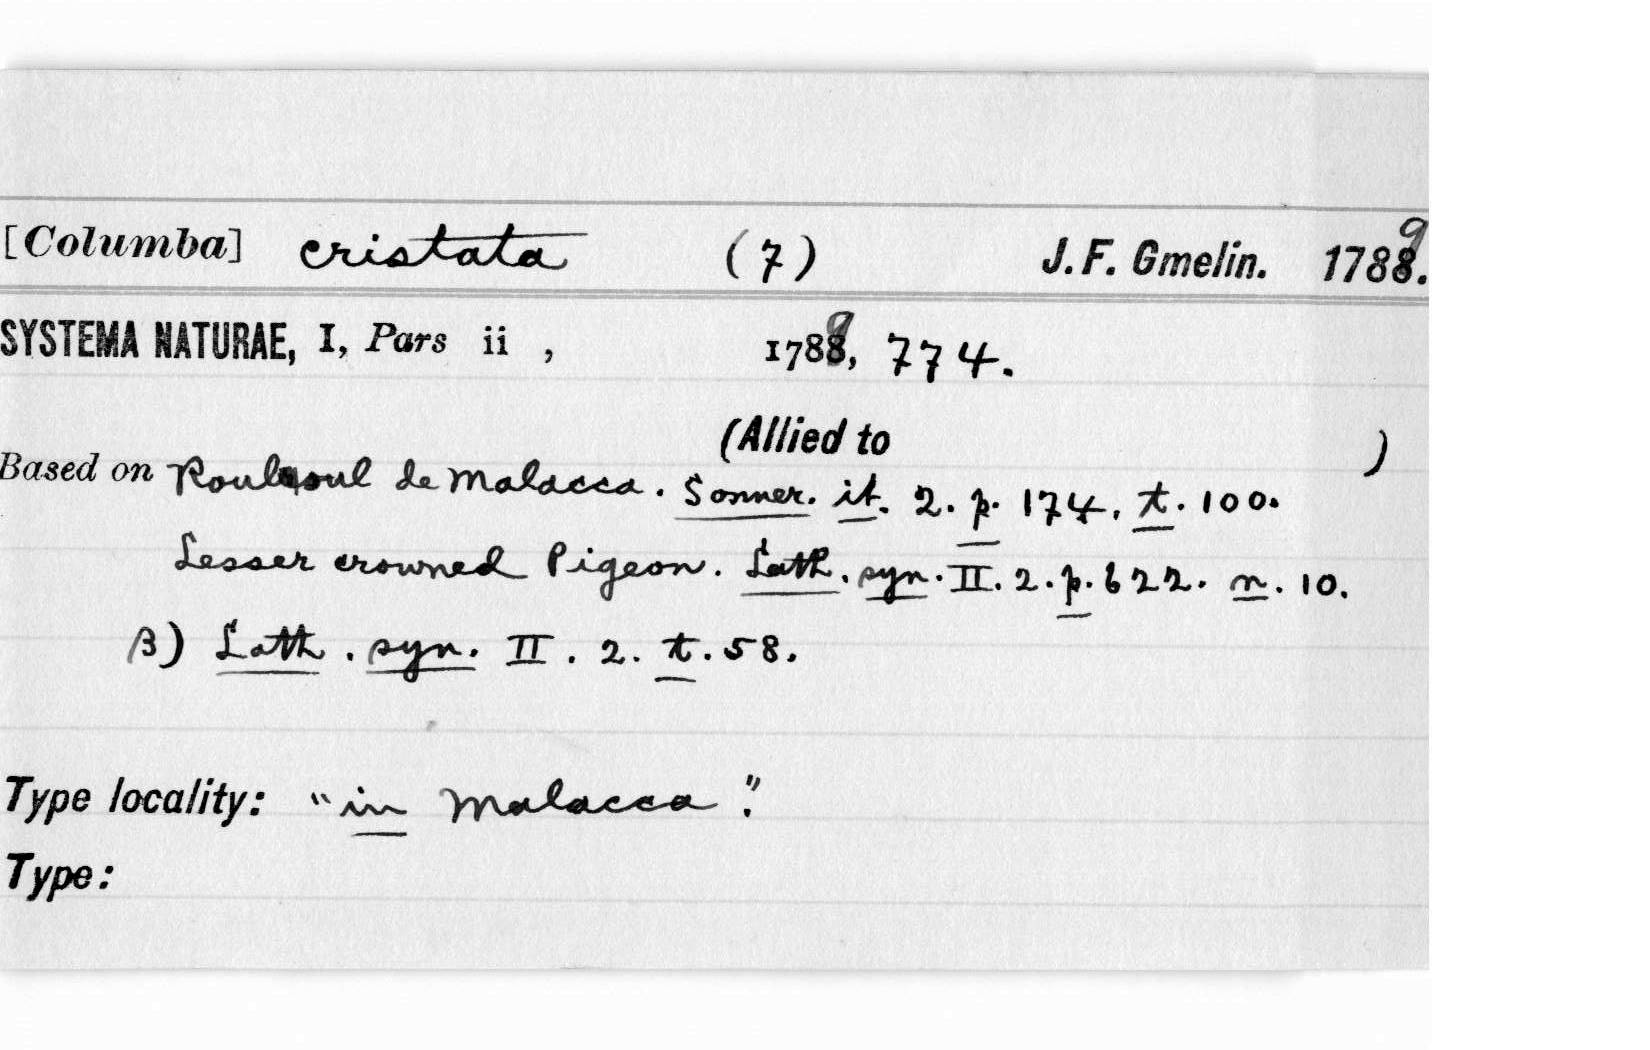 [Columba] cristata (7) J. F. Gmelin. 1789.
SYSTEMA NATURAE, I, Pars ii , 1789, 774.
(Allied to )
Based on Roulsoul de Malacca. Sonner. it. 2. p. 174. t. 100.
Lesser crowned Pigeon. Lath. syn. II. 2. p. 622. n. 10.
β) Lath. syn. II. 2. t. 58.
Type locality: "in Malacca".
Type: